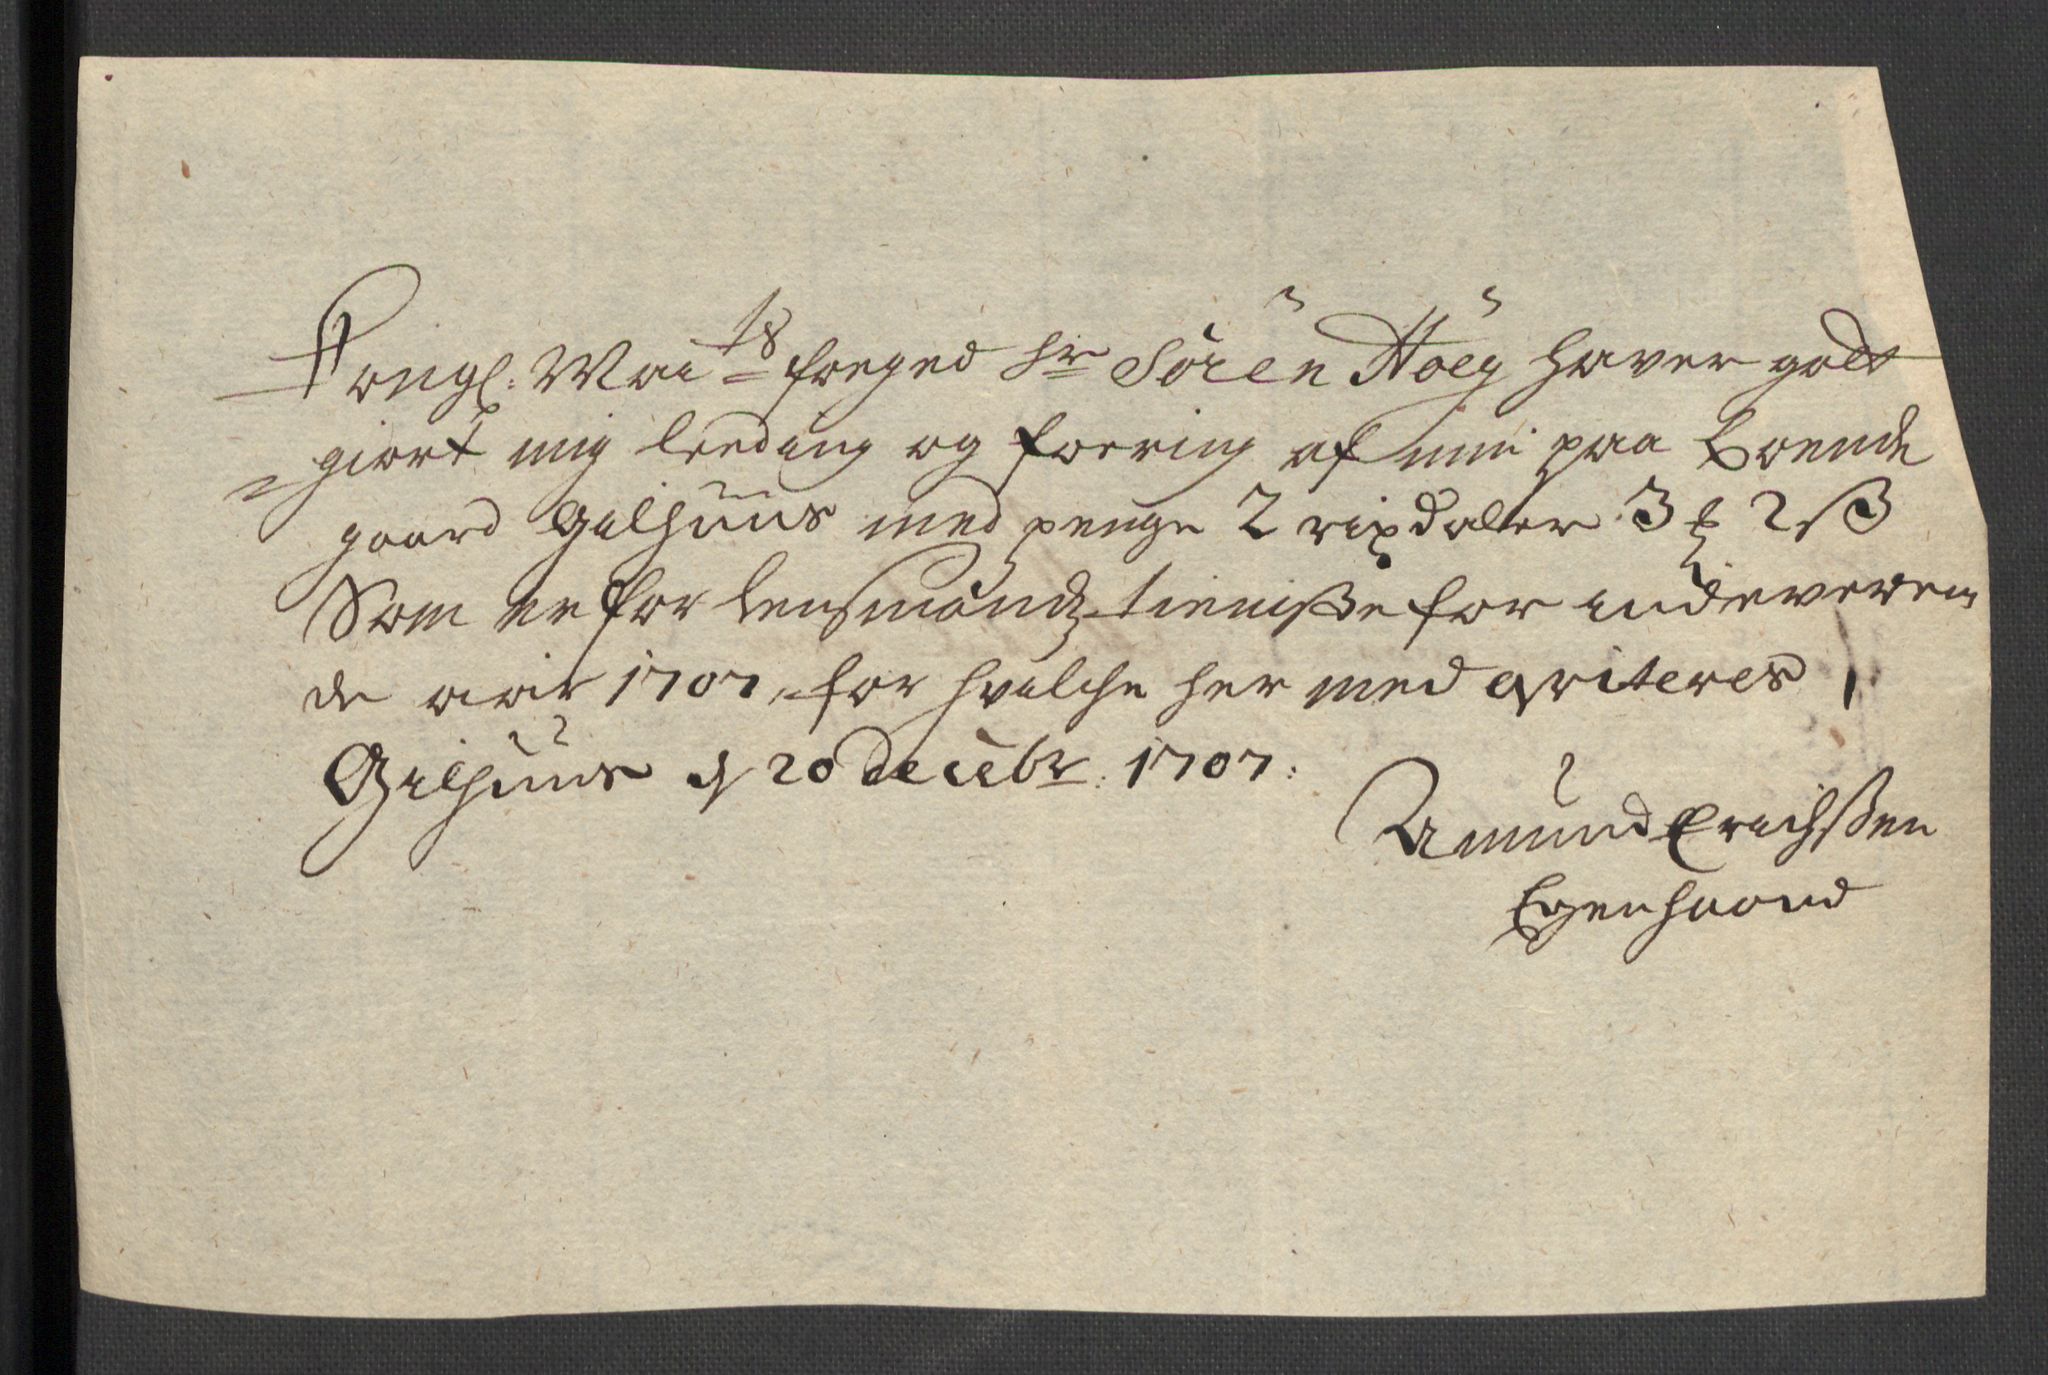 Kongl: Mai ts foeged Hr Sören Höeg haver godt
giort mig leeding og foering af min paa boende
gaard Gilhuus med penge 2 rixdaler 3 ₰ 2 ß
Som er for lensmandz tienniste for indeverren
de aar 1707, for hvilche her med qviteres,
Gilhuus d 20 decēbr: 1707:
Amund Erichssen
Egenhaand